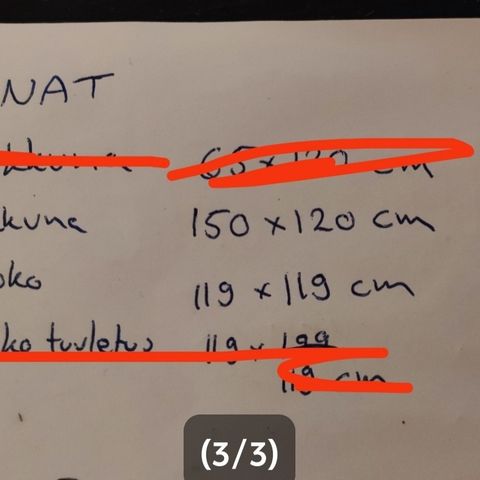 NAT
kkuna 65 x 120 cm
kuna 150 x 120 cm
oko 119 x 119 cm
ko tuuletus 119 x 199
119 cm
(3/3)